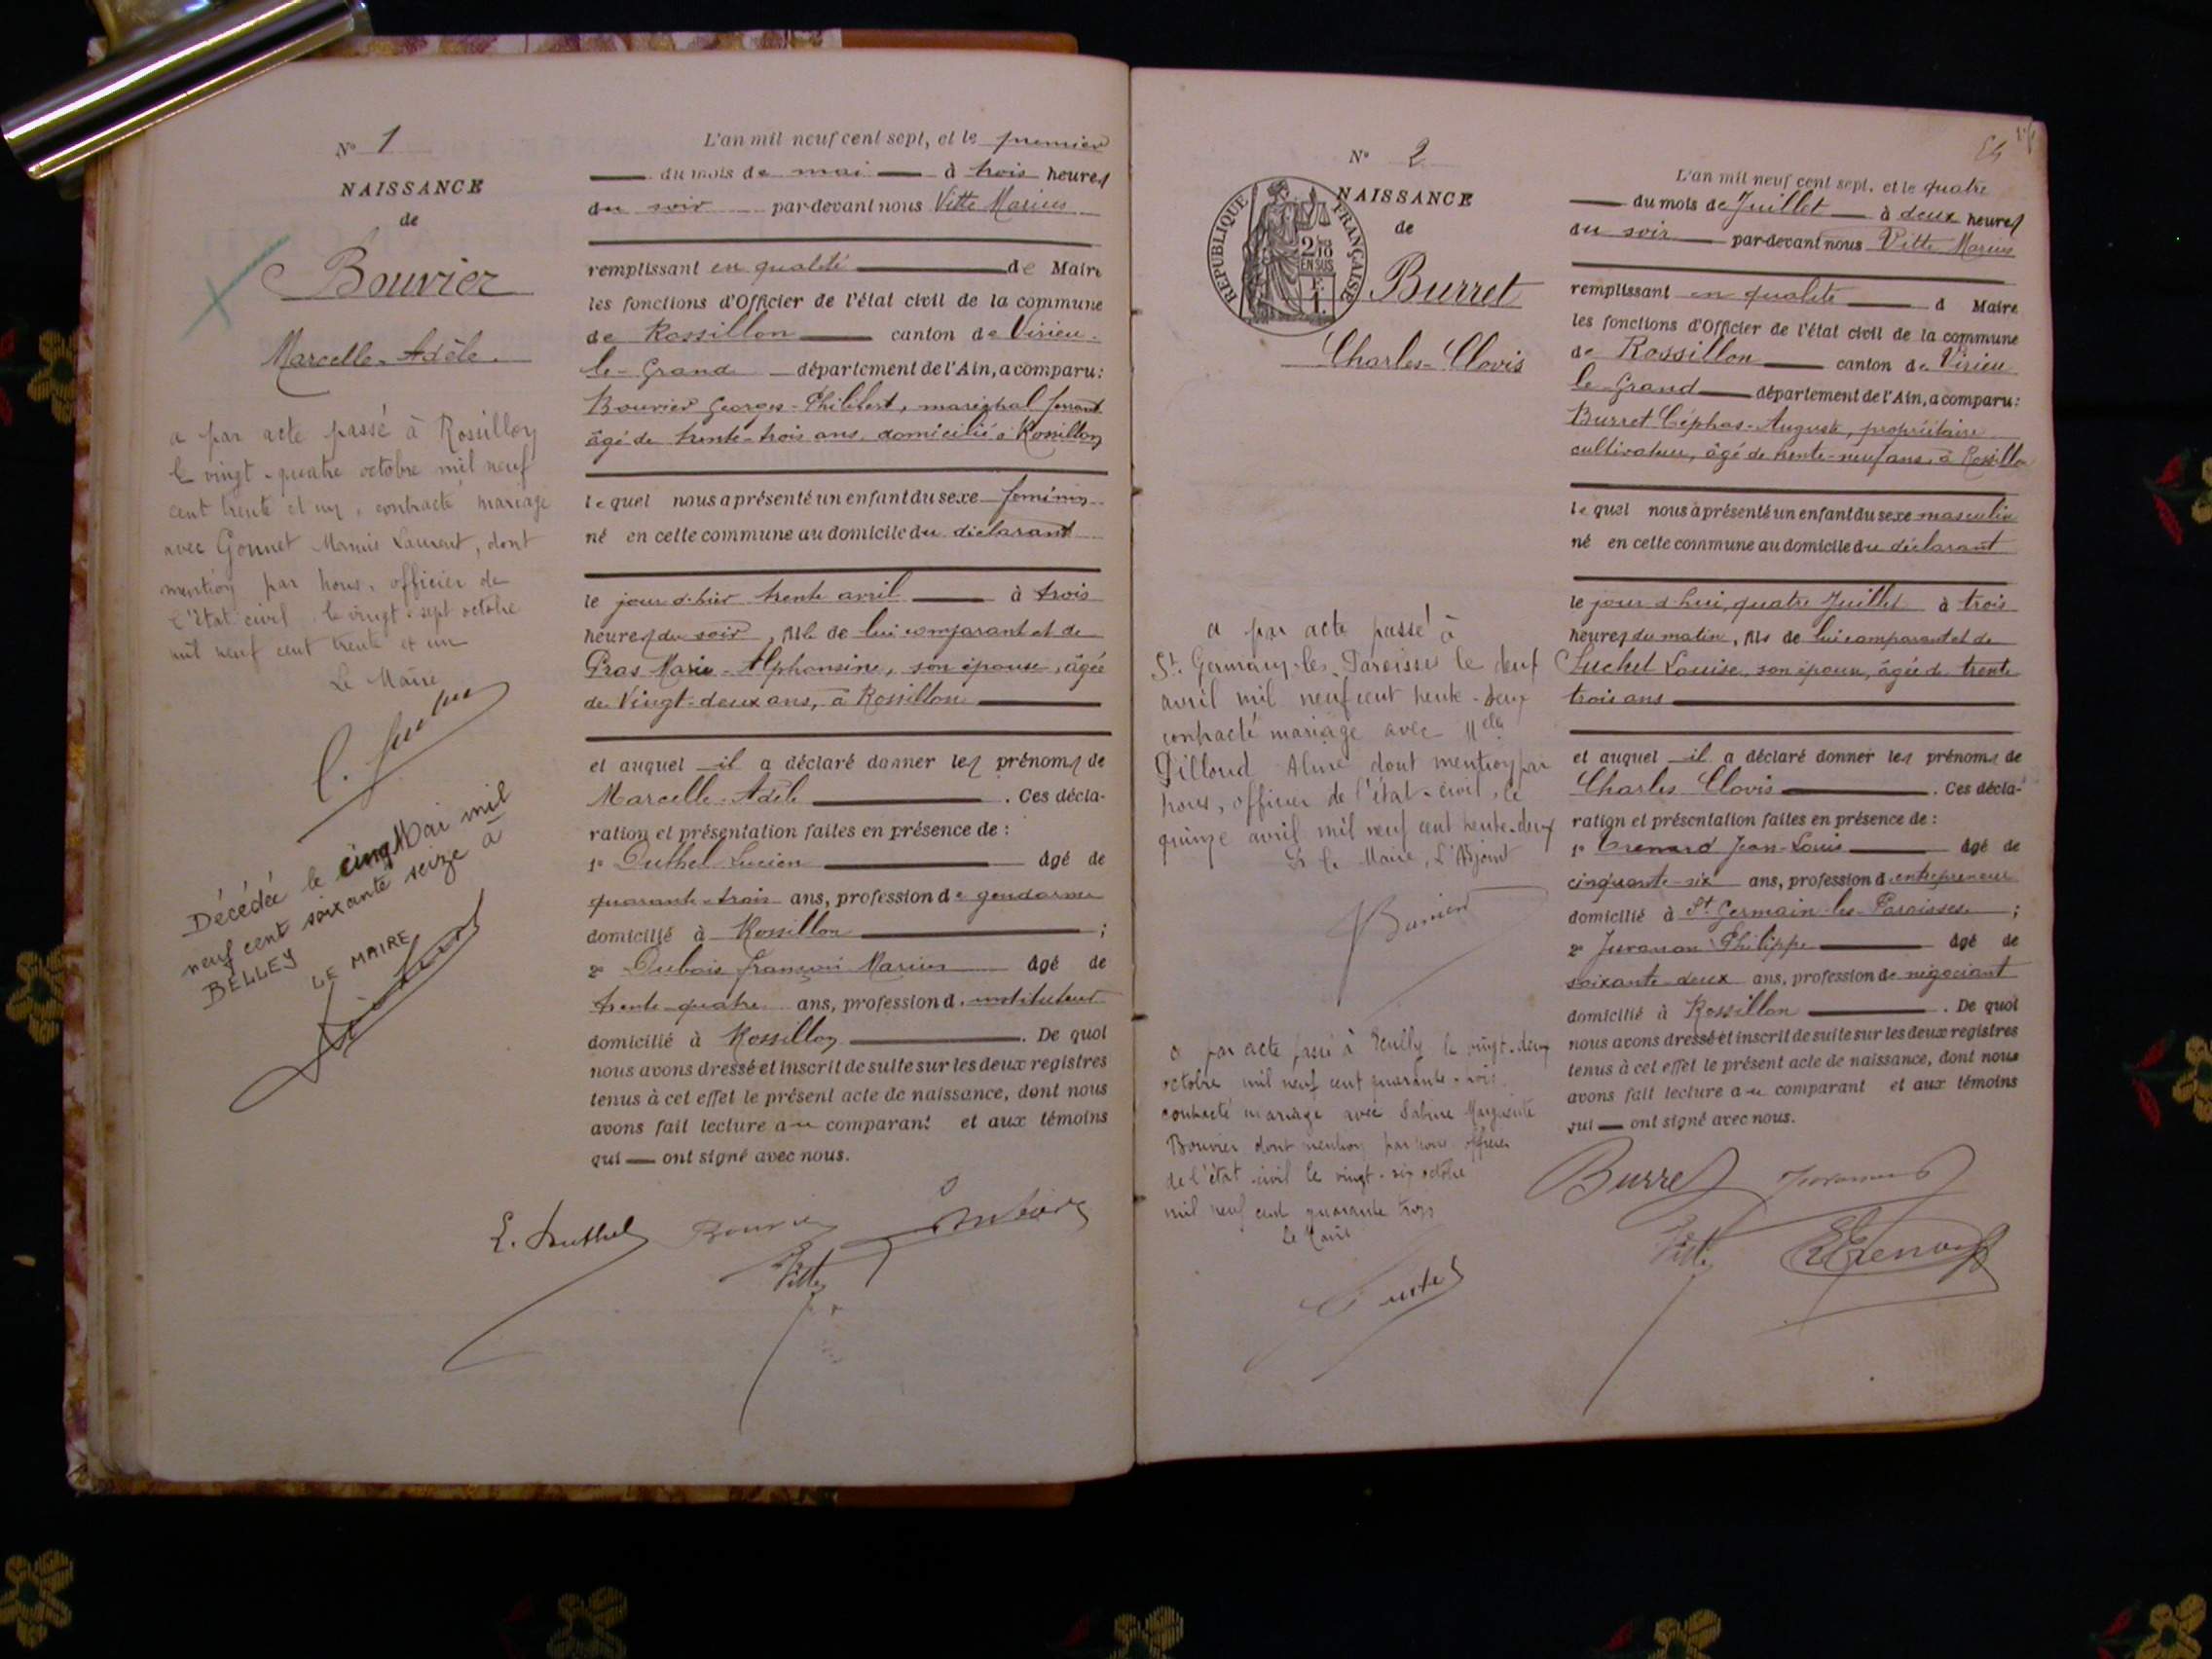 N° 1
NAISSANCE
de
Bouvier
Marcelle-Adèle.
a par acte passé à Rossillon
le vingt-quatre octobre mil neuf
cent trente et un, contracté mariage
avec Gonnet Laurent, dont
mention par nous, officier de
l'Etat civil le vingt-sept octobre
mil neuf cent trente et un
Le Maire
Décédée le cinq Mai mil
neuf cent soixante seize à
BELLEY
LE MAIRE
L'an mil neuf cent sept, et le premier
du mois de mai à trois heures
du soir par-devant nous Vitte Marius
remplissant en qualité de Maire
les fonctions d'Officier de l'état civil de la commune
de Rossillon canton de Virieu-
le-Grand département de l'Ain, a comparu:
Bouvier Georges-Philibert, maréchal ferrant
âgé de trente-trois ans, domicilié à Rossillon
lequel nous a présenté un enfant du sexe feminin
né en cette commune au domicile du déclarant
le jour d'hier trente avril à trois
heures du soir, fille de lui comparant et de
Gras Marie-Alphonsine, son épouse, âgée
de Vingt-deux ans, à Rossillon
et auquel il a déclaré donner les prénoms de
Marcelle-Adèle. Ces décla-
ration et présentation faites en présence de :
1° Duthel Lucien âgé de
quarante-trois ans, profession de gendarme
domicilié à Rossillon ;
2° Dubois François Marius âgé de
trente-quatre ans, profession d'instituteur
domicilié à Rossillon. De quoi
nous avons dressé et inscrit de suite sur les deux registres
tenus à cet effet le présent acte de naissance, dont nous
avons fait lecture au comparant et aux témoins
qui ont signé avec nous.
L. Duthel Bouvier
Vitte
N° 2
NAISSANCE
de
REPUBLIQUE FRANÇAISE
2/10
EN SUS
Burret
Charles-Clovis
a par acte passé à
St Germain-les-Paroisses le neuf
avril mil neuf cent trente-deux
contracté mariage avec Melle
Dilloud Aline dont mention par
nous, officier de l'état-civil, le
quinze avril mil neuf cent trente-deux
Le Maire, L'Adjoint
a par acte passé à le vingt-deux
octobre mil neuf cent quarante-trois
contracté mariage avec Sabine Marguerite
Bouvier dont mention par nous officier
de l'état-civil le vingt-six octobre
mil neuf cent quarante trois
Le Maire
L'an mil neuf cent sept, et le quatre
du mois de Juillet à deux heures
du soir par-devant nous Vitte Marius
remplissant en qualité d Maire
les fonctions d'Officier de l'état civil de la commune
de Rossillon canton de Virieu
le Grand département de l'Ain, a comparu:
Burret Céphas-Auguste, propriétaire
cultivateur, âgé de trente-neuf ans, à Rossillon
lequel nous a présenté un enfant du sexe masculin
né en cette commune au domicile du déclarant
le jour d'hui, quatre Juillet à trois
heures du matin, fils de lui comparant et de
Suchet Louise, son épouse, âgée de trente
trois ans
et auquel il a déclaré donner les prénoms de
Charles Clovis. Ces décla-
ration et présentation faites en présence de :
1° Jean-Louis âgé de
cinquante-six ans, profession d'entrepreneur
domicilié à St Germain-les-Paroisses ;
2° Juvanon Philippe âgé de
soixante deux ans, profession de négociant
domicilié à Rossillon. De quoi
nous avons dressé et inscrit de suite sur les deux registres
tenus à cet effet le présent acte de naissance, dont nous
avons fait lecture au comparant et aux témoins
qui ont signé avec nous.
Burret
Vitte